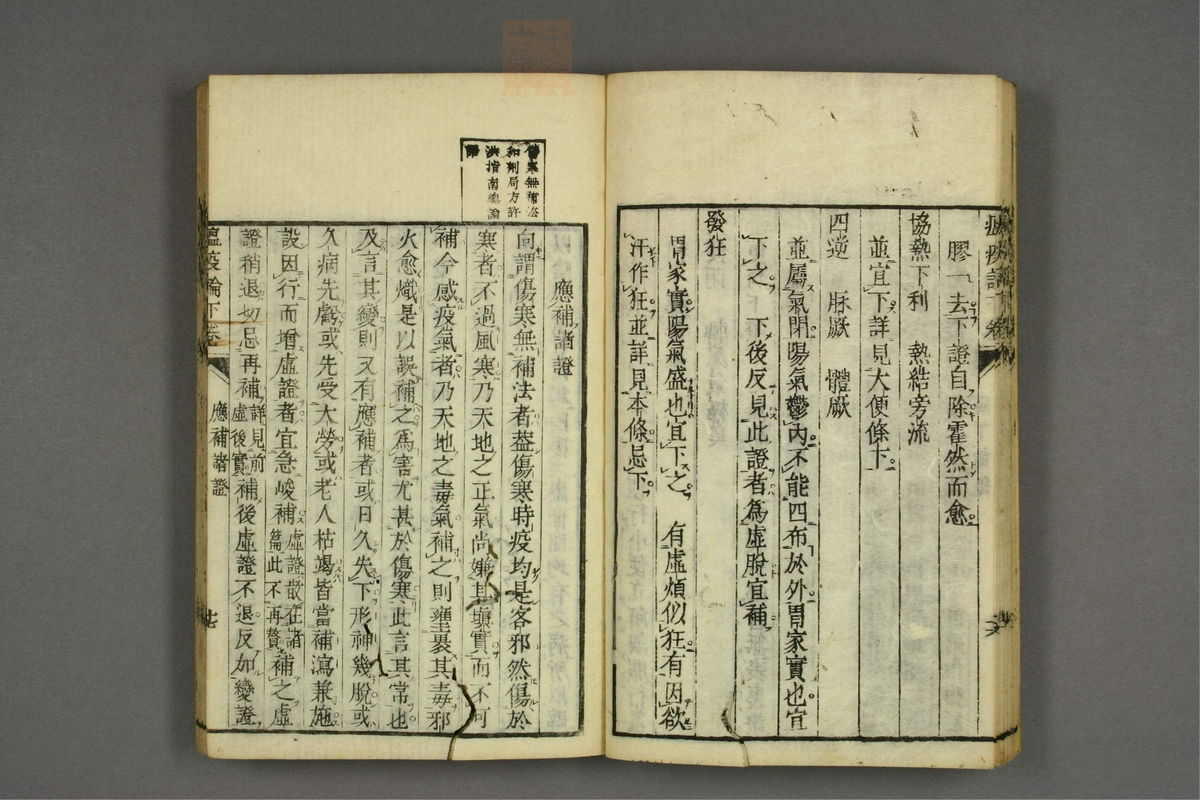 膠一去下證自除霍然而愈
協熱下利　熱結旁流
並宜下詳見大便條下
四逆　脉厥　體厥
並屬氣閉陽氣鬱內不能四布於外胃家實也宜
下之　下後反見此證者爲虛脫宜補
發狂
胃家實陽氣盛也宜下之　有虛煩似狂有因欲
汗作狂並詳見本條忌下
傷寒無補法
和劑局方許
洪指南總論
應補諸證
向謂傷寒無補法者葢傷寒時疫均是客邪然傷於
寒者不過風寒乃天地之正氣尚嫌其塡實而不可
補今感疫氣者乃天地之毒氣補之則壅裹其毒邪
火愈熾是以誤補之爲害尤甚於傷寒此言其常也
及言其變則又有應補者或日久失下形神幾脫或
久病先虧或先受大勞或老人枯竭皆當補瀉兼施
設因行而增虛證者宜急峻補虛證散在諸篇此不再贅補之虛
證稍退切忌再補詳見前虛後實補後虛證不退反加變證
瘟疫論下卷　應補諸證　十七